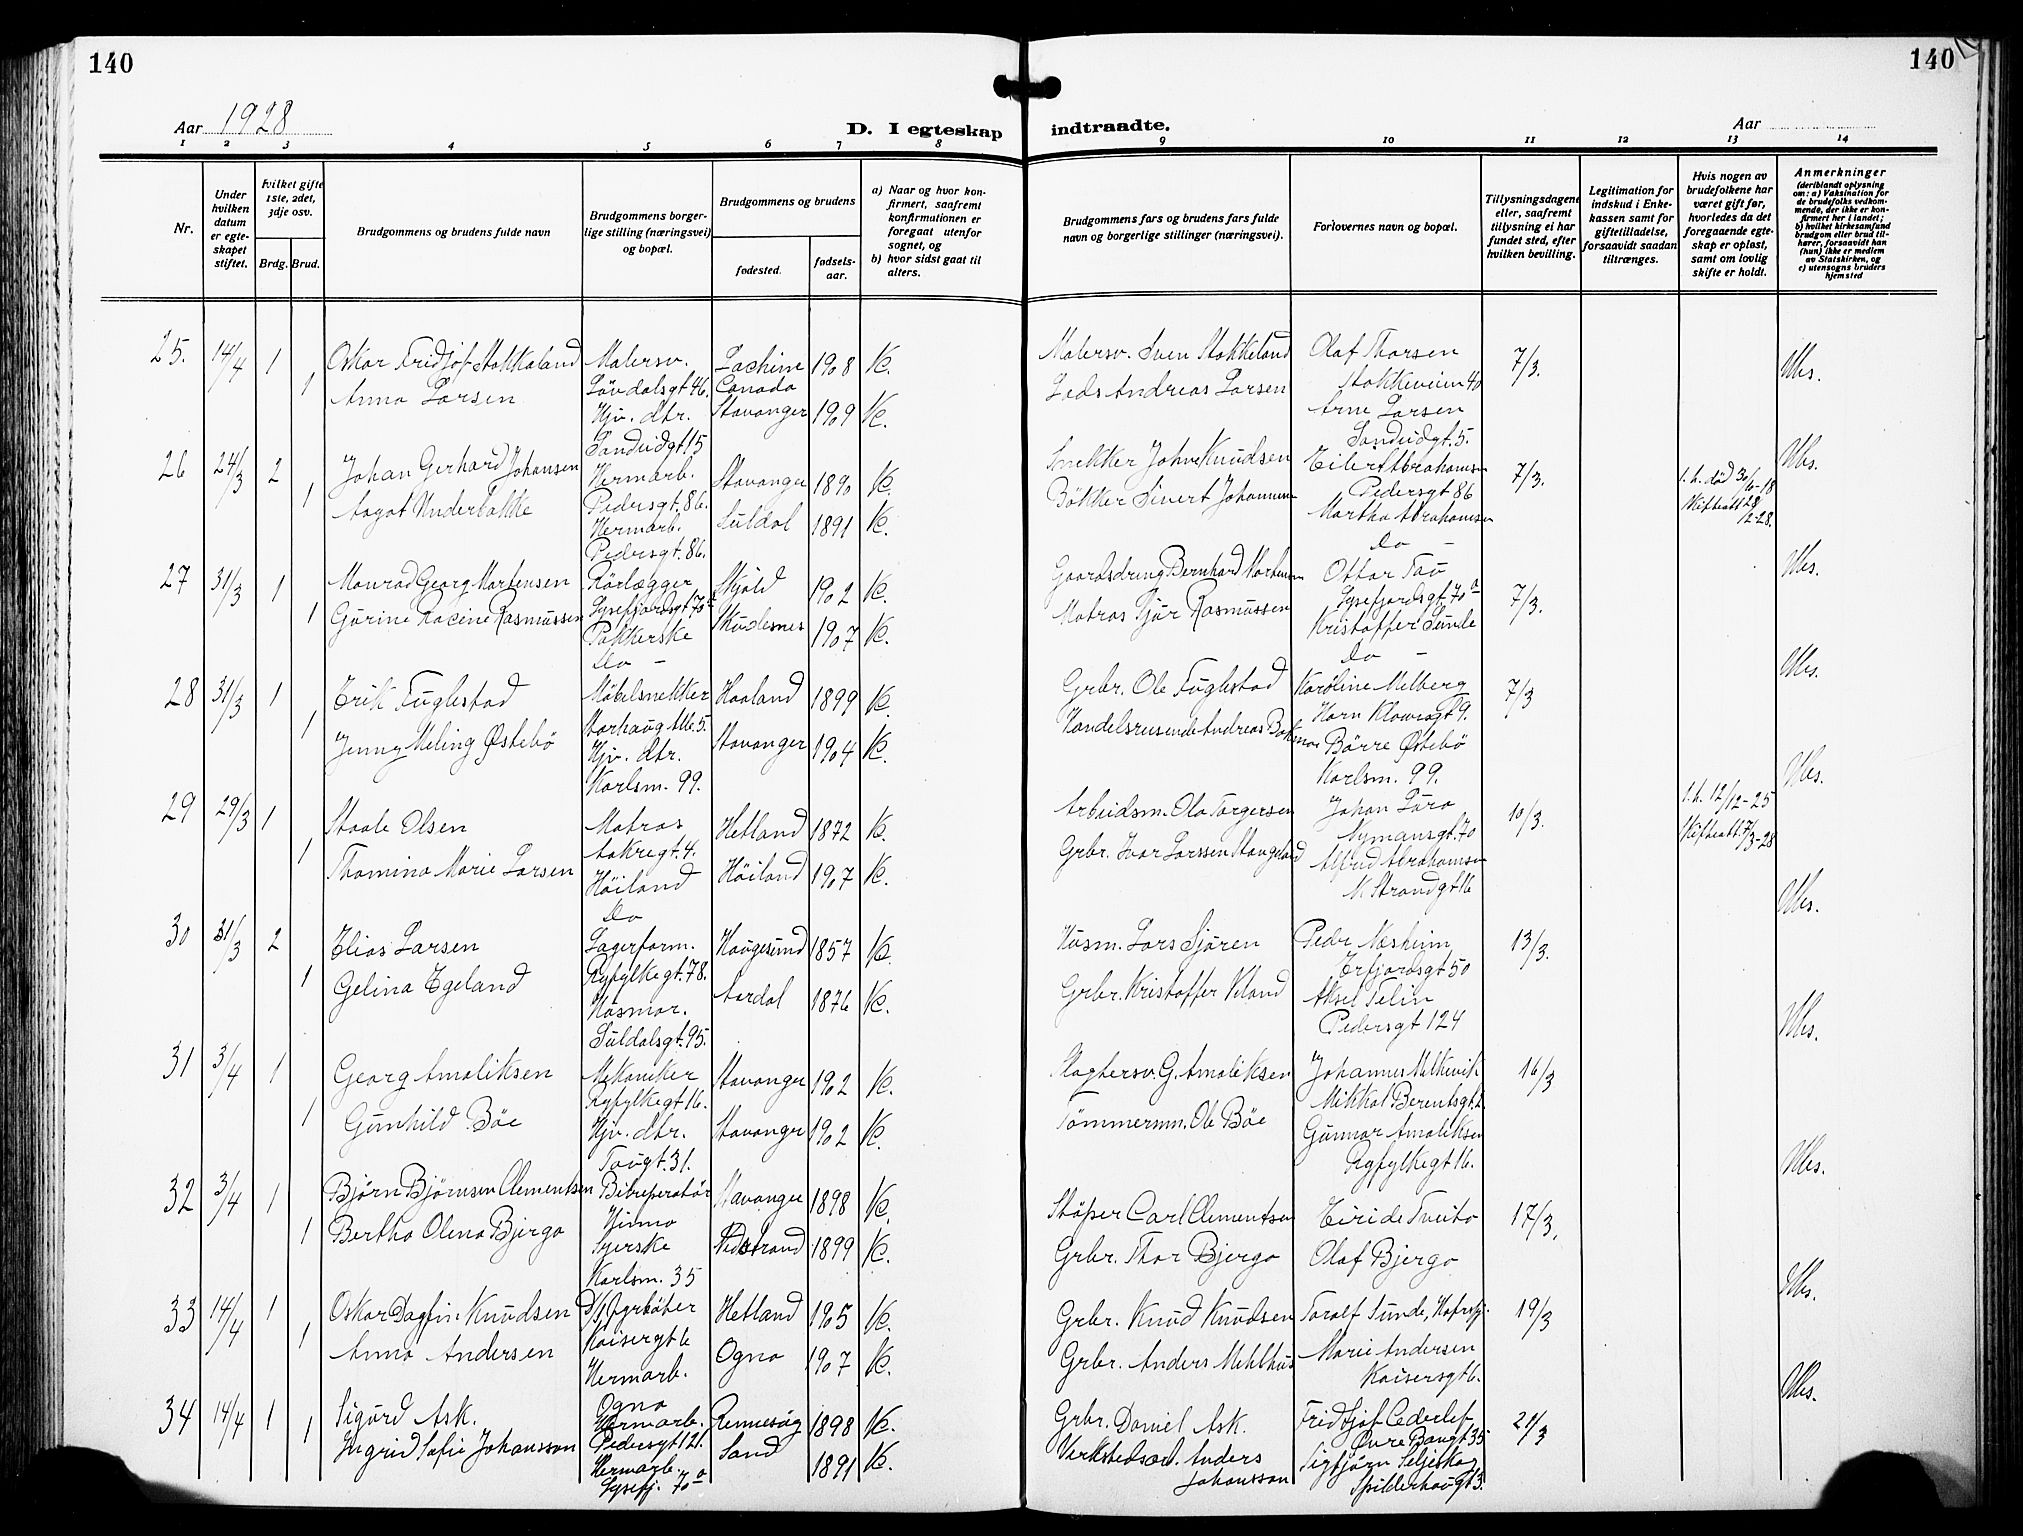 140
140
Aar 1928
D. I egteskap
indtraadte.
Aar
1 2 3 4 5 6 7 8
9 10 11 12 13 14
Nr.
Under hvilken datum er egteskapet stiftet.
Hvilket gifte 1ste, 2det, 3dje osv.
Brdg. Brud.
Brudgommens og brudens fulde navn
Brudgommens borgerlige stilling (næringsvei) og bopæl.
Brudgommens og brudens
fødested.
fødselsaar.
a) Naar og hvor konfirmert, saafremt konfirmationen er foregaat utenfor sognet, og
b) hvor sidst gaat til alters.
Brudgommens fars og brudens fars fulde navn og borgerlige stillinger (næringsvei).
Forlovernes navn og bopæl.
Tillysningsdagene eller, saafremt tillysning ei har fundet sted, efter hvilken bevilling.
Legitimation for indskud i Enkekassen samt for giftetilladelse, forsaavidt saadan tiltrænges.
Hvis nogen av brudefolkene har været gift før, hvorledes da det foregaaende egteskap er opløst, samt om lovlig skifte er holdt.
Anmerkninger
(deriblandt oplysning om: a) Vaksination for de brudefolks vedkommende, der ikke er konfirmert her i landet; b) hvilket kirkesamfund brudgom eller brud tilhører, forsaavidt han (hun) ikke er medlem av Statskirken, og c) utensogns bruders hjemsted
25. 14/4 1 Oskar Fridtjof Stokkeland Malersv. Lachine 1908 K. Malersv. Sven Stokkeland Olaf Thorsen 7/3.
Løvdalsgt 46. Canada Stokkeveien 40
1 Anna Larsen Hjv. dtr. Stavanger 1909 K. Andreas Larsen Arne Larsen
Sandvidgt 15 Sandvidgt. 5.
26 24/3 2 Johan Gerhard Johansen Hermarb. Stavanger 1890 K. Snekker John Knudsen Eilert Abrahamsen 7/3. 1. h. død 30/6-18
Pedersgt. 86. Pedersgt 86 Skifteatt 28/2-28.
1 Aagot Underbakke Hermarb. Suldal 1891 K. Bøkker Sivert Johannesen Martha Abrahamsen
Pedersgt. 86. Do -
27 31/3 1 Monrad Georg Mortensen Rørlægger Skjold 1902 K. Gaardsdreng Bernhard Mortensen Ottar Tau 7/3.
Lysefjordsgt 70a Lysefjordsgt. 70a
1 Gurine Racine Rasmussen Pakkerske Skudesnes 1907 K. Matros Sjur Rasmussen Kristoffer Sunde
Do - Do -
28 31/3 1 Erik Fuglestad Møbelsnekker Haaland 1899 K. Grbr. Ole Fuglestad Karoline Melberg 7/3
Storhaug Alle 5. Horn Klowsgt 9.
1 Jenny Meling Østebø Hjv. dtr. Stavanger 1904 K. Handelsreisende Andreas Børre Østebø
Karlsm. 99. Karlsm. 99.
29 29/3 1 Staale Olsen Matros Hetland 1872 K. Arbeidsm. Ola Torgersen Johan Lura 10/3. 1. h. 12/12-25
Aakregt. 4. Nymansgt. 70 Skifteatt. 7/3-28
1 Thomina Marie Larsen Høiland Høiland 1907 K. Grbr. Ivar Larssen Stangeland Alfred Abrahamsen
Do N. Strandgt 16
30 31/3 2 Elias Larsen Lagerform. Haugesund 1857 K. Husm. Lars Sjøren Peder Næsheim 13/3.
Ryfylkegt. 78. Erfjordsgt 50
1 Gelina Egeland Husmor. Aardal 1876 K. Grbr. Kristoffer Aksel Telin
Suldalsgt. 95. Pedersgt 124
31 3/4 1 Georg Amaliksen Mekaniker Stavanger 1902 K. Slagtersv. G. Amaliksen Johannes Melkevik 16/3
Ryfylkegt 16. Mikkal Berentsgt. 2.
1 Gunhild Bøe Hjv. dtr. Stavanger 1902 K. Tømmermn. Ole Bøe Gunnar Amaliksen
Taugt. 31. Ryfylkegt 16.
32 3/4 1 Bjørn Bjørnsen Clementsen Bilreperatør Stavanger 1898 K. Støper Carl Clementsen Eiri de Tveito 17/3.
Hinna
1 Bertha Olena Bjergo Syerske Nedstrand 1899 K. Grbr. Thor Bjergo Olaf Bjergo
Karlsm. 35
33 14/4 1 Oskar Dagfin Knudsen D/S fyrbøter Hetland 1905 K. Grbr. Knud Knudsen Toralf Sunde, Hafrsfj. 19/3
Kaisergt 6
1 Anna Andersen Hermarb. Ogna 1907 K. Grbr. Anders Mehlhus Marie Andersen
Ogna Kaisersgt 6.
34 14/4 1 Sigurd Ask. Hermarb. Rennesøy 1898 K. Grbr. Daniel Ask. Fridtjof Cederlef 21/3
Pedersgt 121. Øvre Bangt 35
1 Ingrid Sofie Johansson Hermarb. Sand 1891 K. Verkstedsarb. Anders Johansson Sigbjørn Seljeskog
Lysefj. 70a Spilderhaugt 3.